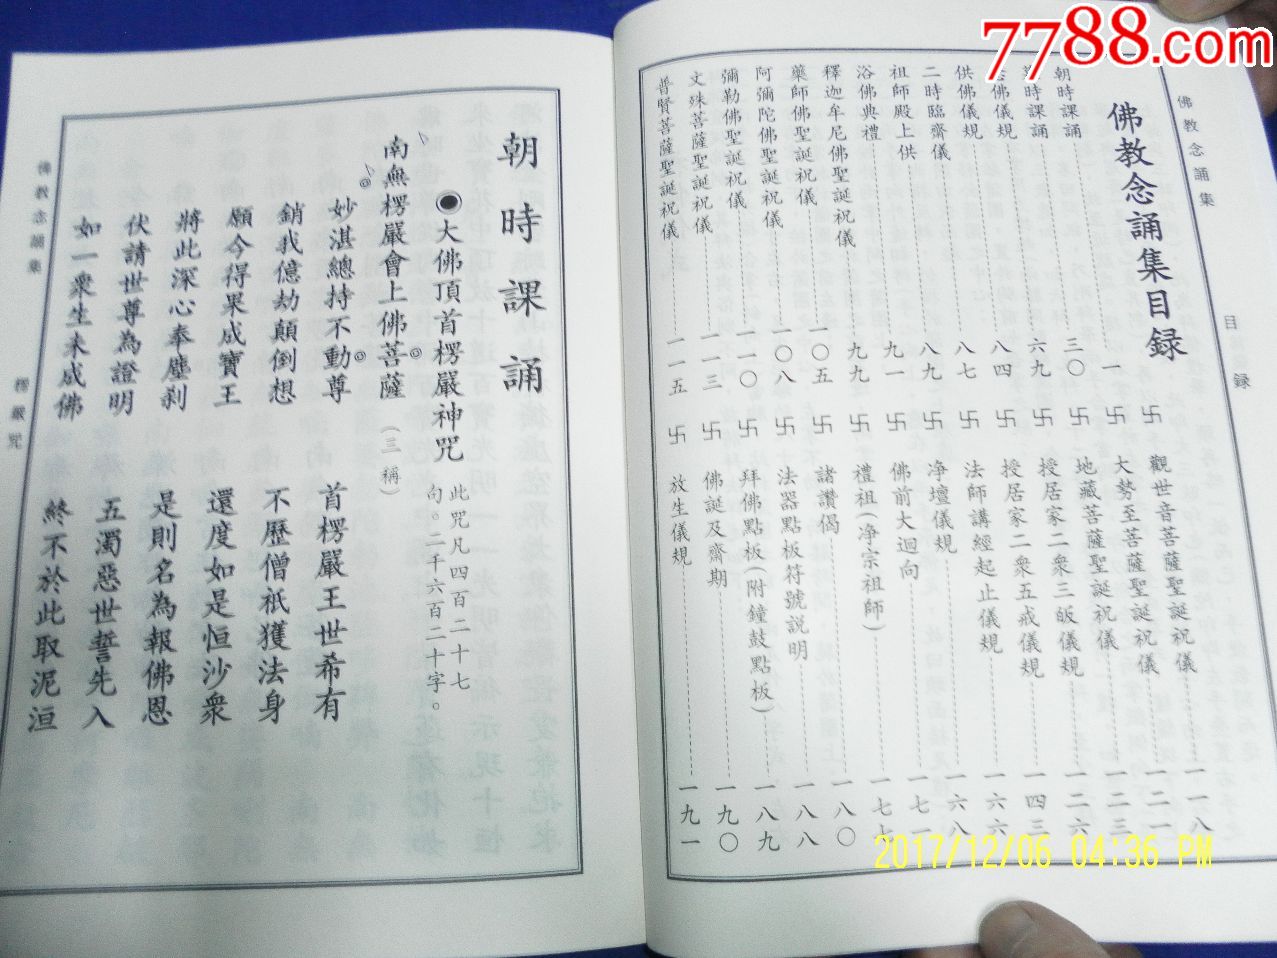 7788.com
佛教念誦集
目錄
佛教念誦集目錄
朝時課誦 一
時課誦 三〇
佛儀規 六九
供佛儀規 八四
二時臨齋儀 八七
祖師殿上供 八九
浴佛典禮 九一
釋迦牟尼佛聖誕祝儀 九九
藥師佛聖誕祝儀 一〇五
阿彌陀佛聖誕祝儀 一〇八
彌勒佛聖誕祝儀 一一〇
文殊菩薩聖誕祝儀 一一三
普賢菩薩聖誕祝儀 一一五
卐 觀世音菩薩聖誕祝儀 一一八
卐 大勢至菩薩聖誕祝儀 一二一
卐 地藏菩薩聖誕祝儀 一二三
卐 授居家二衆三皈儀規 一二六
卐 授居家二衆五戒儀規 一四三
卐 法師講經起止儀規 一六六
卐 淨壇儀規 一六八
卐 佛前大迴向 一七一
卐 禮祖(淨宗祖師) 一七七
卐 諸讚偈 一八〇
卐 法器點板符號説明 一八八
卐 拜佛點板(附鐘鼓點板) 一八九
卐 佛誕及齋期 一九〇
卐 放生儀規 一九一
2017/12/06 04:36 PM
朝時課誦
◉大佛頂首楞嚴神咒 此咒凡四百二十七
句。二千六百二十字。
南無楞嚴會上佛菩薩(三稱)
妙湛總持不動尊 首楞嚴王世希有
銷我億劫顛倒想 不歷僧祇獲法身
願今得果成寶王 還度如是恒沙衆
將此深心奉塵刹 是則名為報佛恩
伏請世尊為證明 五濁惡世誓先入
如一衆生未成佛 終不於此取泥洹
佛教念誦集
楞嚴咒